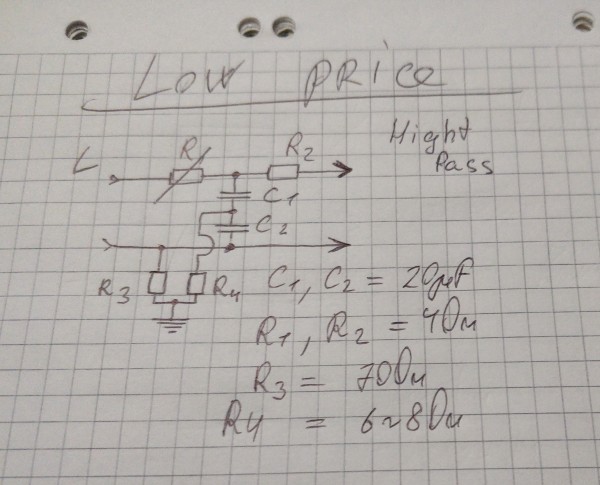 Low price
Hight
Pass
L
R
R2
C1
C2
R3
R4
C1, C2 = 20µF
R1, R2 = 4Ом
R3 = 70Ом
R4 = 6~8Ом